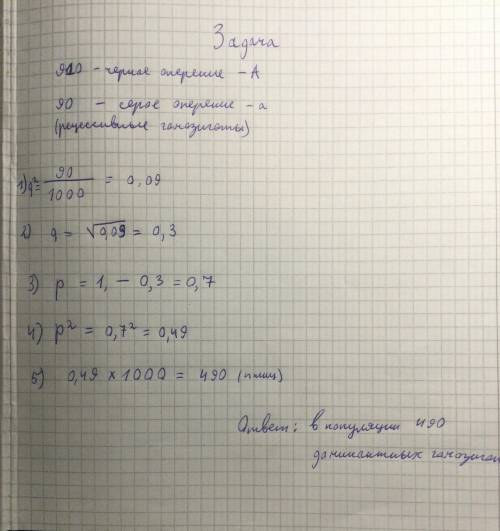 Задача
910 - черное оперение - А
90 - серое оперение - а
(рецессивные гомозиготы)
1) q² = 90/1000 = 0,09
2) q = √0,09 = 0,3
3) p = 1, - 0,3 = 0,7
4) p² = 0,7² = 0,49
5) 0,49 × 1000 = 490 (птиц)
Ответ: в популяции 490
доминантных гомозигот